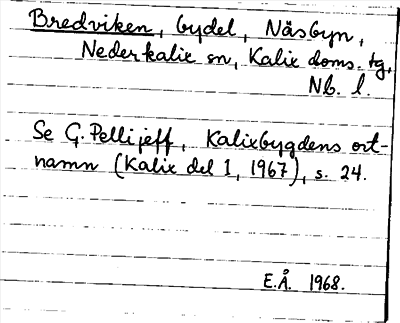 Bredviken, bydel, Näsbyn,
Nederkalix sn, Kalix doms. tg,
Nb. l.
Se G. Pellijeff, Kalixbygdens ort-
namn (Kalix del I, 1967), s. 24.
E.Å. 1968.